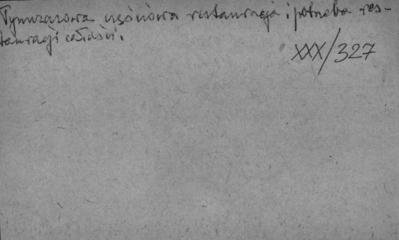 Tymczasowa ucsiciowa restauracja i potrzeba res-
tauracji całości.
XXX/327